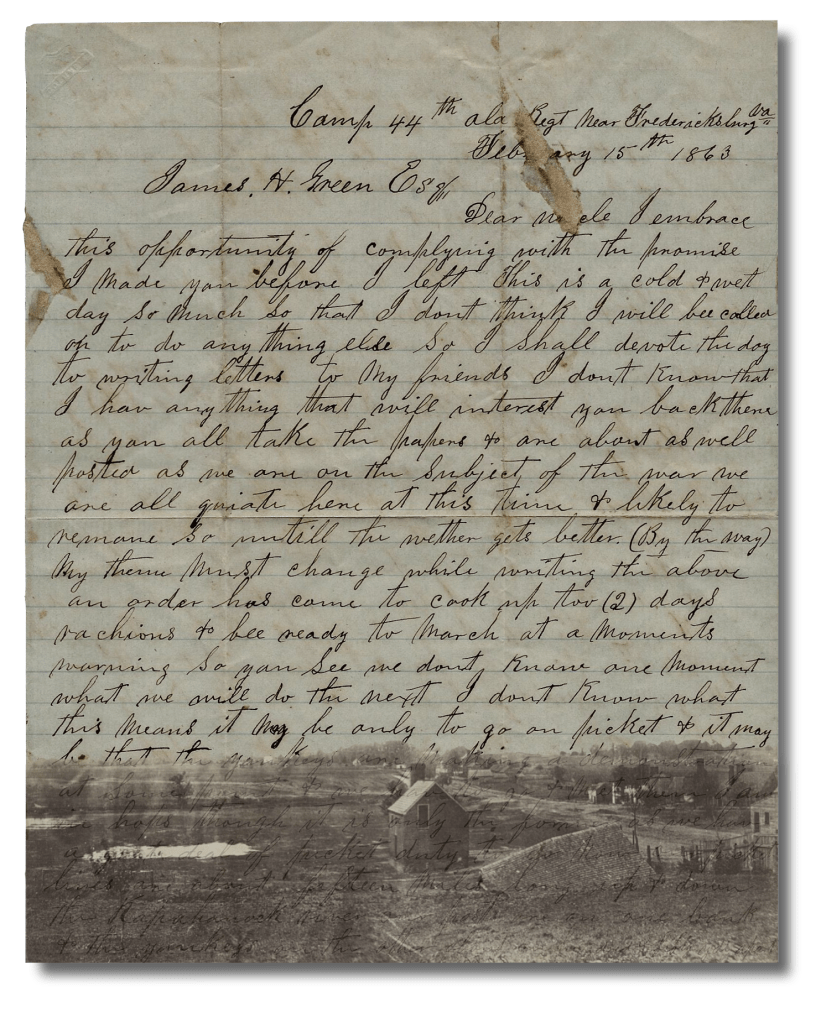 Camp 44th ala Regt Near Fredericksburg Va
February 15th 1863
James. H. Green Esqr
Dear uncle I embrace
this opportunity of complying with the promise
I made you before I left This is a cold & wet
day So Much So that I dont think I will bee called
on to do any thing else So I Shall devote the day
to writing letters to My friends I dont Know that
I hav any thing that will interest you back there
as you all take the papers & are about as well
posted as we are on the Subject of the war we
are all quiate here at this time & likely to
remane So untill the wether gets better. (By the way)
My theme Must change while writing the above
an order has come to cook up too (2) days
rachions & bee ready to March at a Moments
warning So you See we dont Know one Moment
what we will do the next I dont Know what
this Means it May be only to go on picket & it may
be that the yankeys are Making a
at Some point &
in hops though it is only the
a great deal of picket duty to
lines are about fifteen Miles long up & down
the Rapahanock River we on one bank
& the yankeys on the